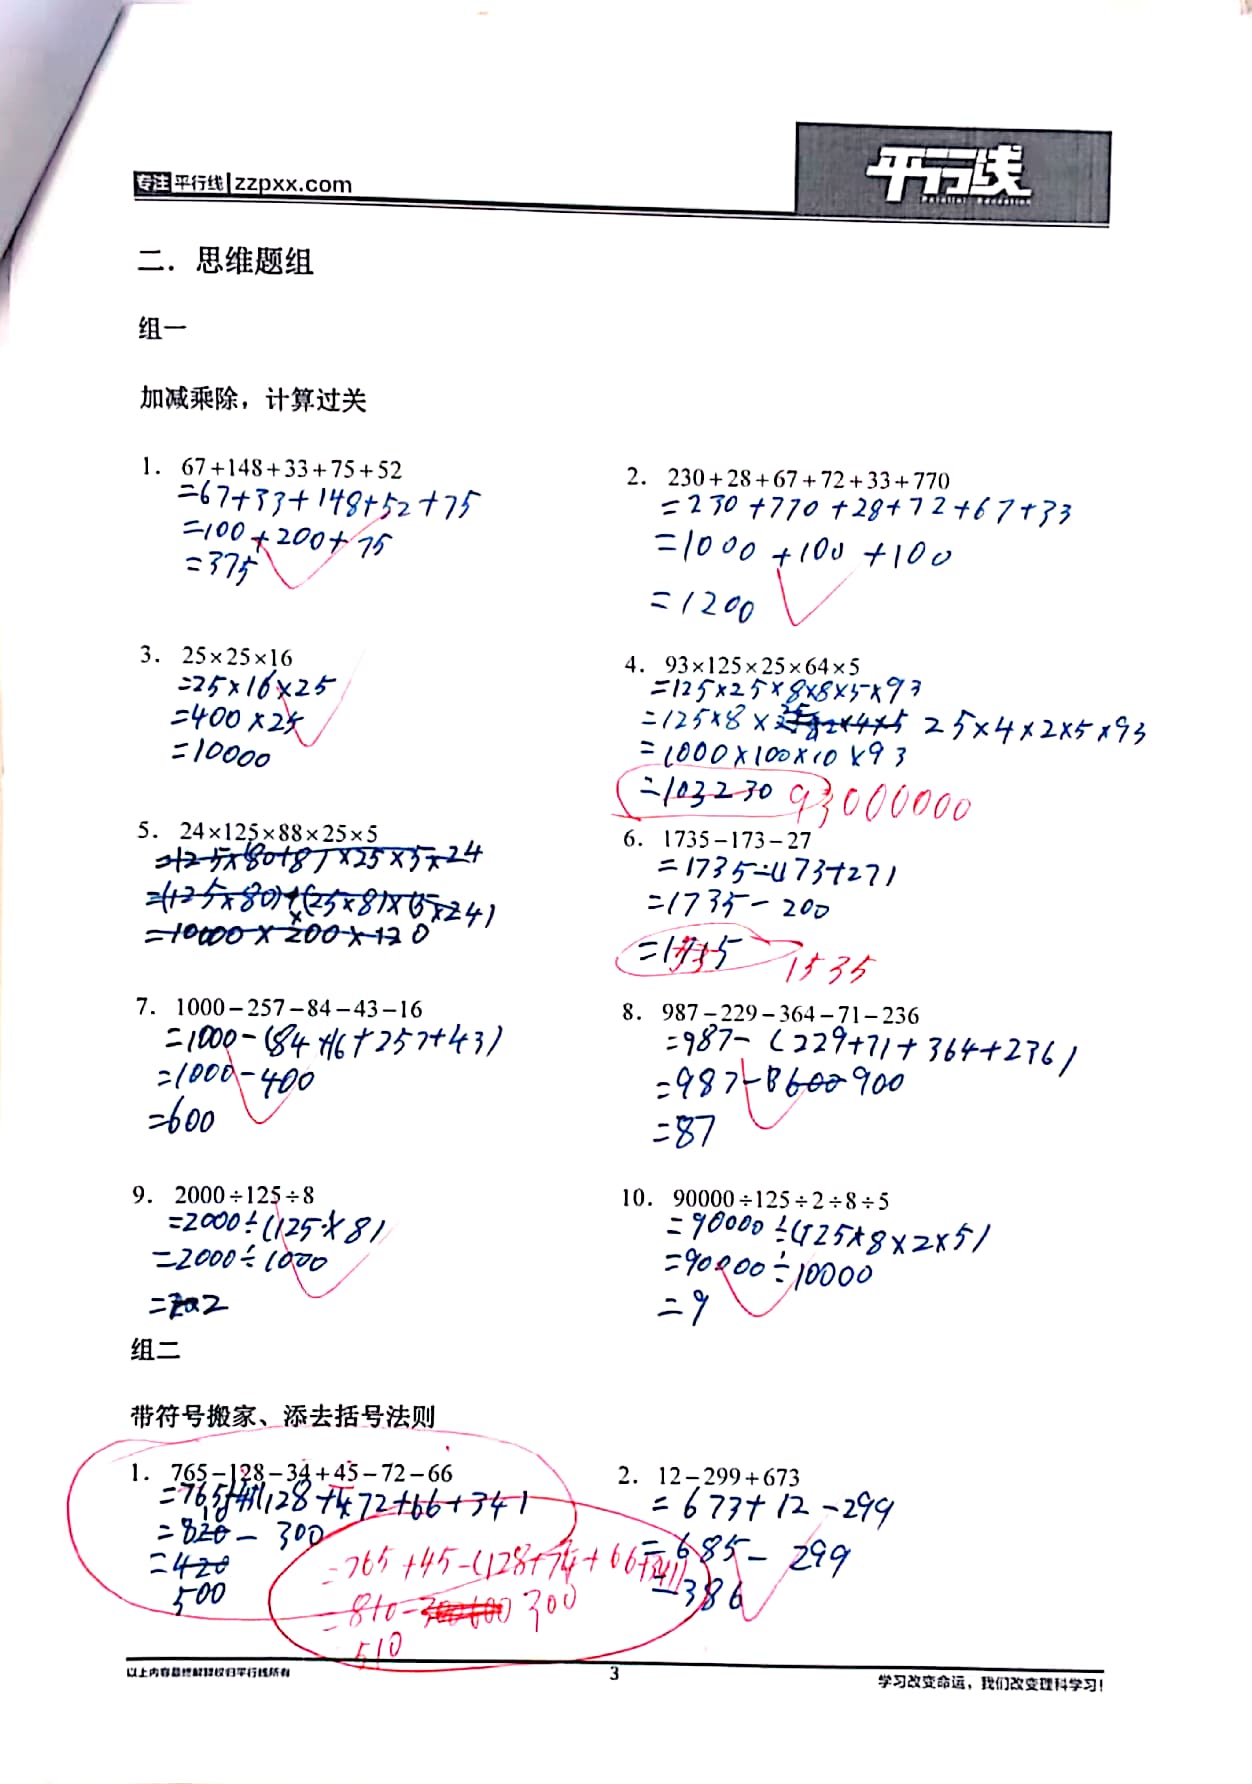 专注平行线 zzpxx.com
平行线
二．思维题组
组一
加减乘除，计算过关
1． 67+148+33+75+52
=67+33+148+52+75
=100+200+75
=375
2． 230+28+67+72+33+770
=230+770+28+72+67+33
=1000+100+100
=1200
3． 25×25×16
=25×16×25
=400×25
=10000
4． 93×125×25×64×5
=125×25×8×8×5×93
=125×8× 25×4×2×5×93
=1000×100×10×93
=103230 93000000
5． 24×125×88×25×5
=125×(80+8)×25×5×24
=(125×80)×(25×8)×(5×24)
=10000×200×120
6． 1735−173−27
=1735-(173+27)
=1735-200
1535
7． 1000−257−84−43−16
=1000-(84+16+257+43)
=1000-400
=600
8． 987−229−364−71−236
=987-(229+71+364+236)
=987-8600 900
=87
9． 2000÷125÷8
=2000÷(125×8)
=2000÷1000
=2
10． 90000÷125÷2÷8÷5
=90000÷(125×8×2×5)
=90000÷10000
=9
组二
带符号搬家、添去括号法则
1． 765−128−34+45−72−66
=820-300
=420
500
=765+45-(128+74+66+34)
=810-300
510
2． 12−299+673
=673+12-299
=685-299
=386
以上内容最终解释权归平行线所有
3
学习改变命运，我们改变理科学习！